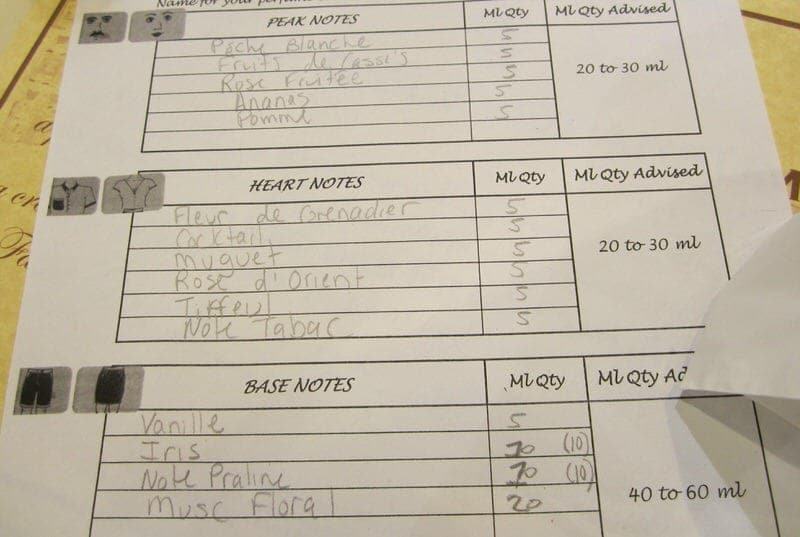 Name for your
PEAK NOTES Ml Qty Ml Qty Advised
Pêche Blanche 5
Fruits de Cassi's 5
Rose Fruitée 5
Ananas 5
Pomme 5
20 to 30 ml
HEART NOTES Ml Qty Ml Qty Advised
Fleur de Grenadier 5
Cocktail 5
Muguet 5
Rose d'Orient 5
5
Note Tabac 5
20 to 30 ml
BASE NOTES Ml Qty Ml Qty
Vanille 5
Iris (10)
Note Praline (10)
Musc Floral 20
40 to 60 ml